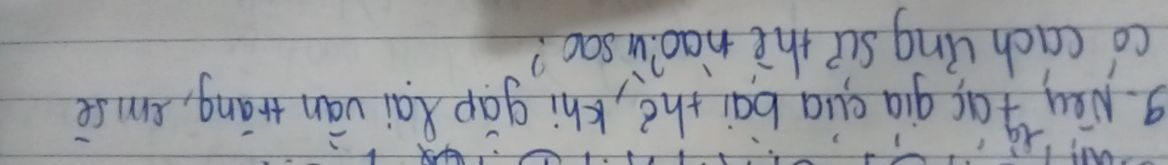 9- Nếu là tác giả của bài thơ, khi gặp lại vần trăng, em sẽ
có cách ứng sử thế nào? Vì sao?